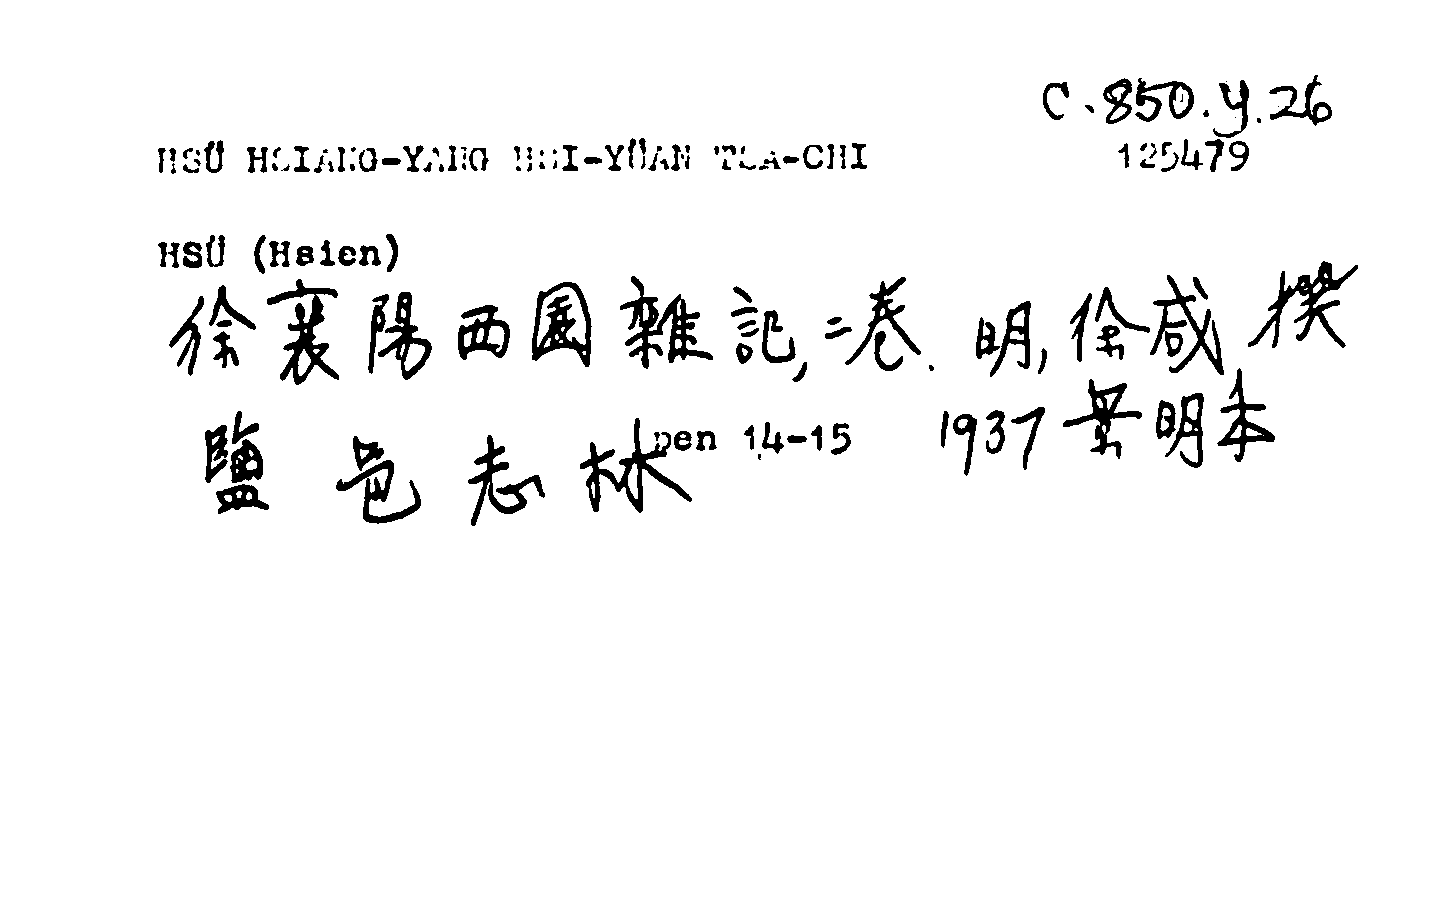 C.850.y.26
HSÜ HSIANG-YANG HSI-YÜAN TSA-CHI 125479
HSÜ (Hsien)
徐襄陽西園雜記,二卷. 明,徐咸撰
鹽邑志林 pen 14-15 1937景明本